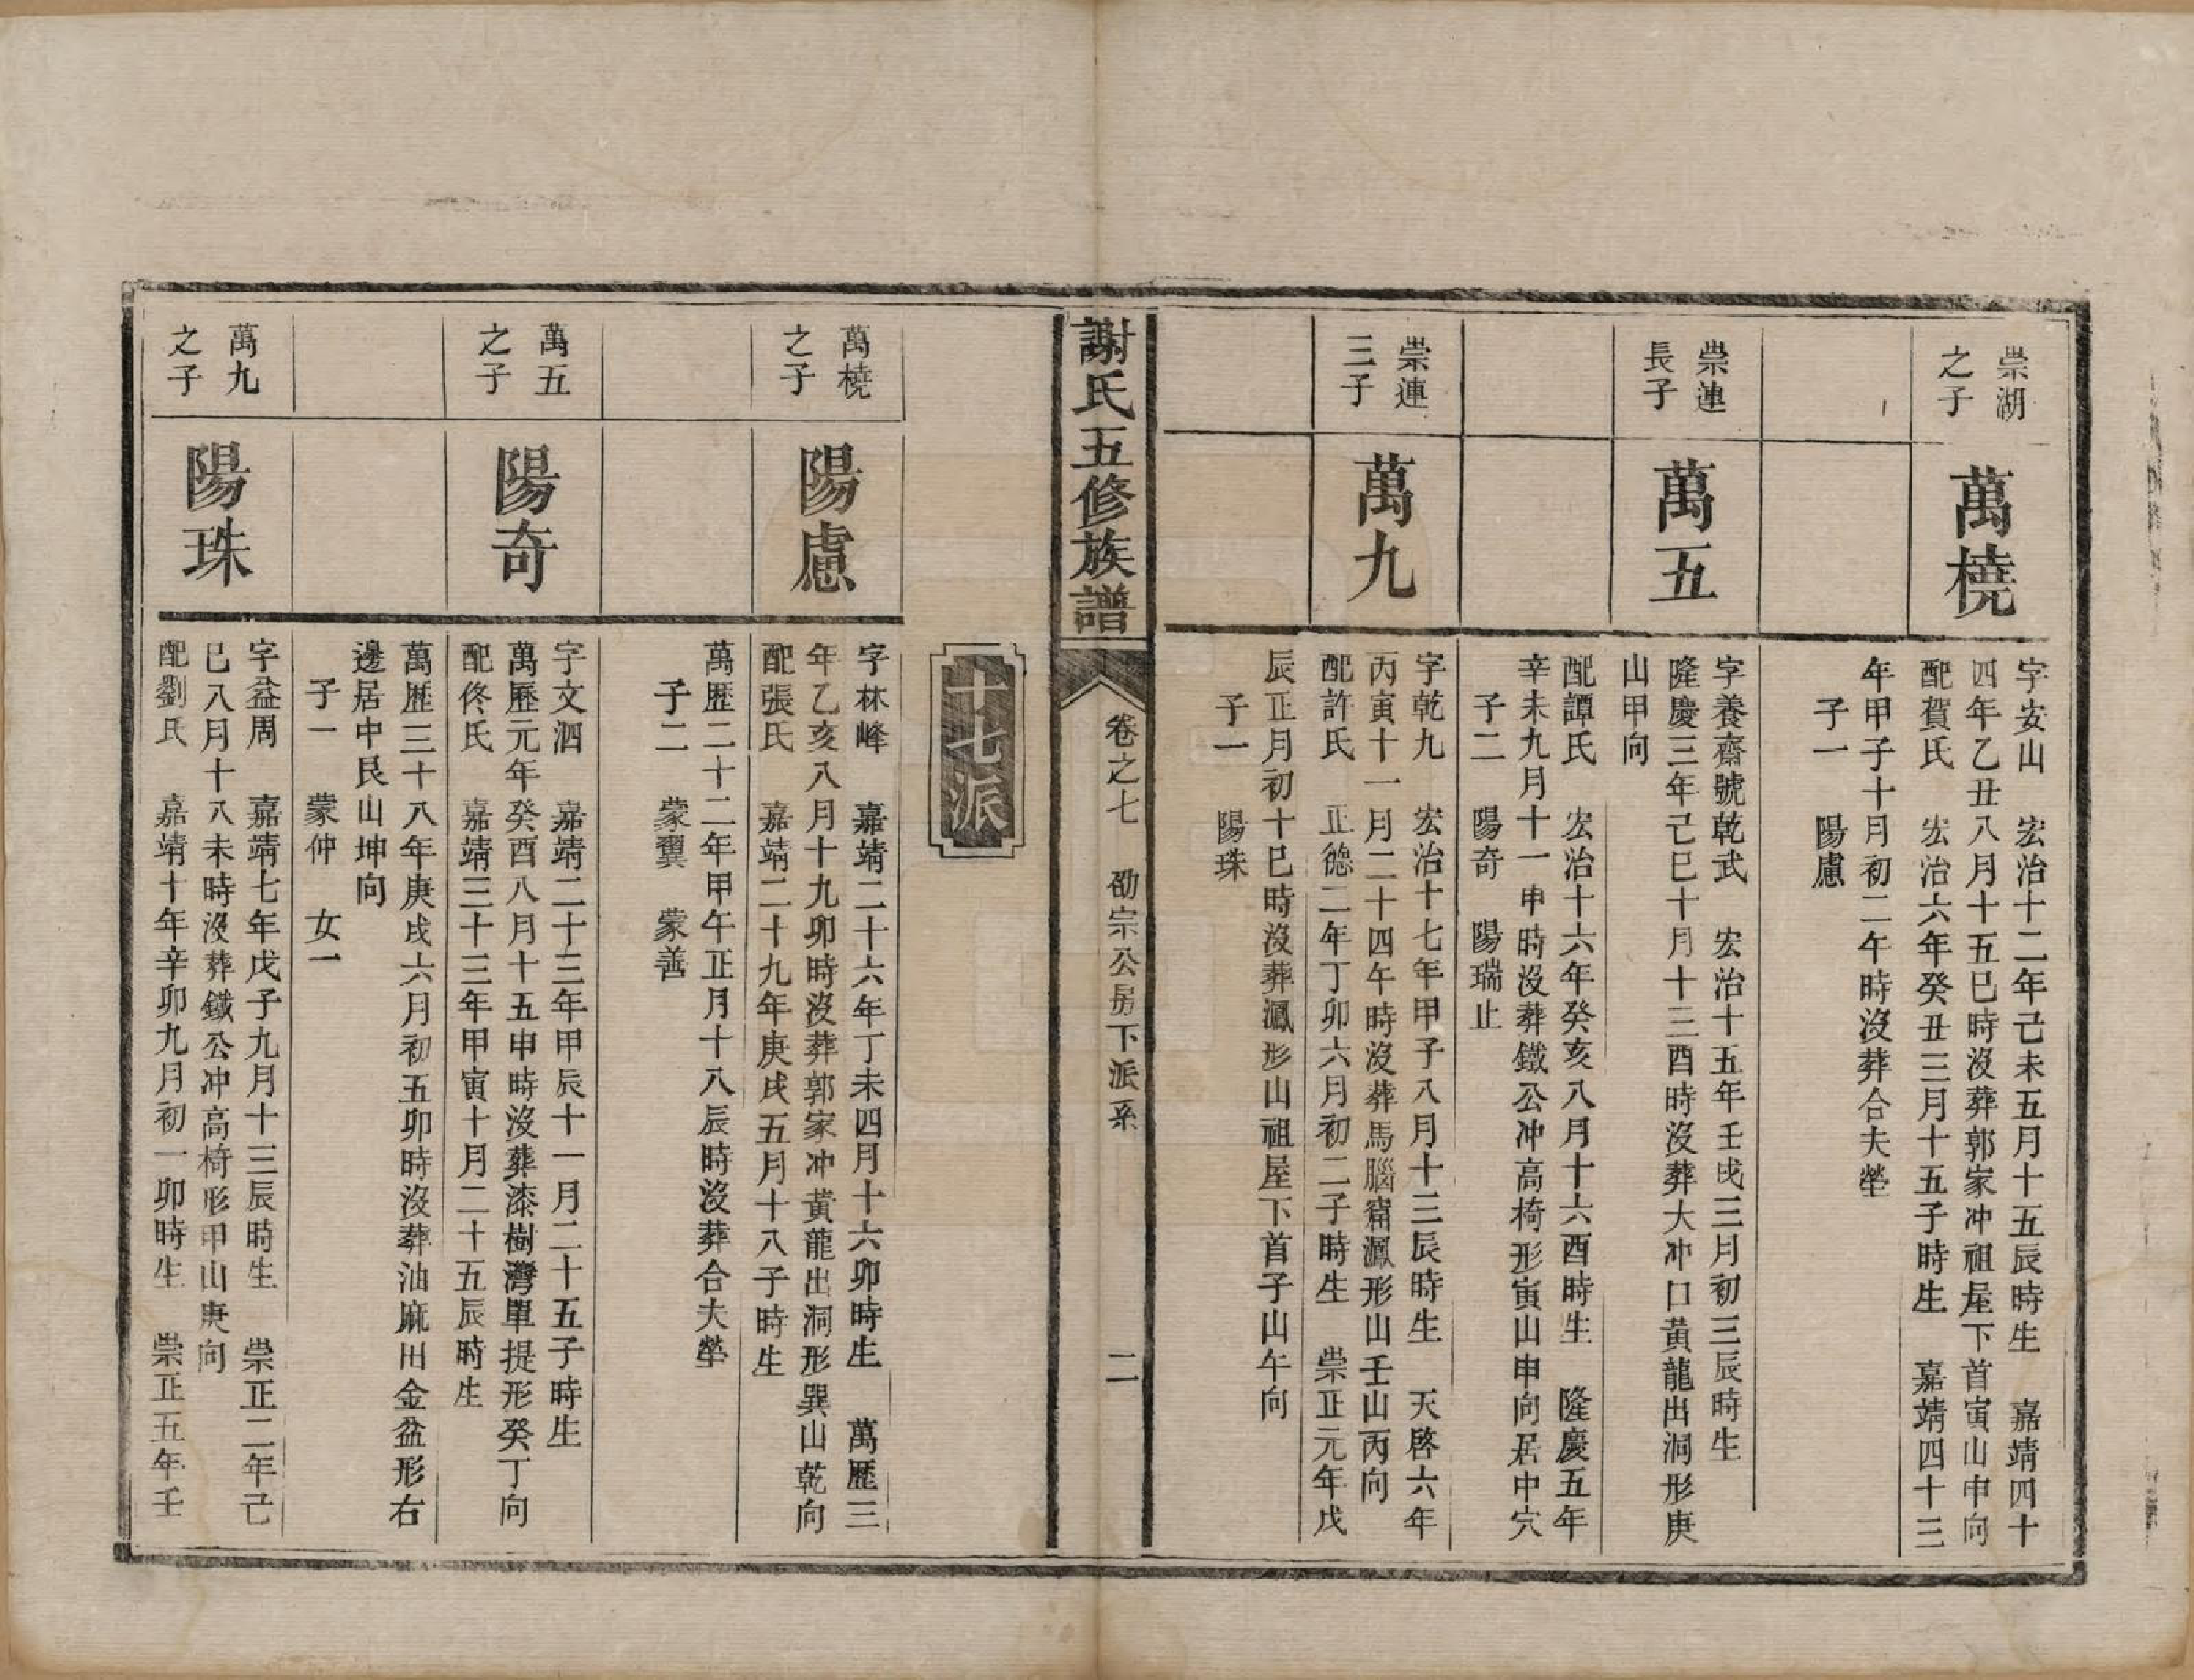 崇湖
之子
萬橈
字安山　宏治十二年己未五月十五辰時生　嘉靖四十
四年乙丑八月十五巳時沒葬郭家冲祖屋下首寅山申向
配賀氏　宏治六年癸丑三月十五子時生　嘉靖四十三
年甲子十月初二午時沒葬合夫塋
子一　陽慮
崇連
長子
萬五
字養齋號乾武　宏治十五年壬戌三月初三辰時生
隆慶三年己巳十月十三酉時沒葬大冲口黃龍出洞形庚
山甲向
配譚氏　宏治十六年癸亥八月十六酉時生　隆慶五年
辛未九月十一申時沒葬鐵公冲高椅形寅山申向居中穴
子二　陽奇　陽瑞止
崇連
三子
萬九
字乾九　宏治十七年甲子八月十三辰時生　天啓六年
丙寅十一月二十四午時沒葬馬腦窩鳳形山壬山丙向
配許氏　正德二年丁卯六月初二子時生　崇正元年戊
辰正月初十巳時沒葬鳳形山祖屋下首子山午向
子一　陽珠
謝氏五修族譜
卷之七　劭宗公房下派系　二
十七派
萬橈
之子
陽慮
字林峰　嘉靖二十六年丁未四月十六卯時生　萬歷三
年乙亥八月十九卯時沒葬郭家冲黃龍出洞形巽山乾向
配張氏　嘉靖二十九年庚戌五月十八子時生
萬歷二十二年甲午正月十八辰時沒葬合夫塋
子二　蒙翼　蒙善
萬五
之子
陽奇
字文泗　嘉靖二十三年甲辰十一月二十五子時生
萬歷元年癸酉八月十五申時沒葬漆樹灣單提形癸丁向
配佟氏　嘉靖三十三年甲寅十月二十五辰時生
萬歷三十八年庚戌六月初五卯時沒葬油麻田金盆形右
邊居中艮山坤向
子一　蒙仲　女一
萬九
之子
陽珠
字益周　嘉靖七年戊子九月十三辰時生　崇正二年己
巳八月十八未時沒葬鐵公冲高椅形甲山庚向
配劉氏　嘉靖十年辛卯九月初一卯時生　崇正五年壬